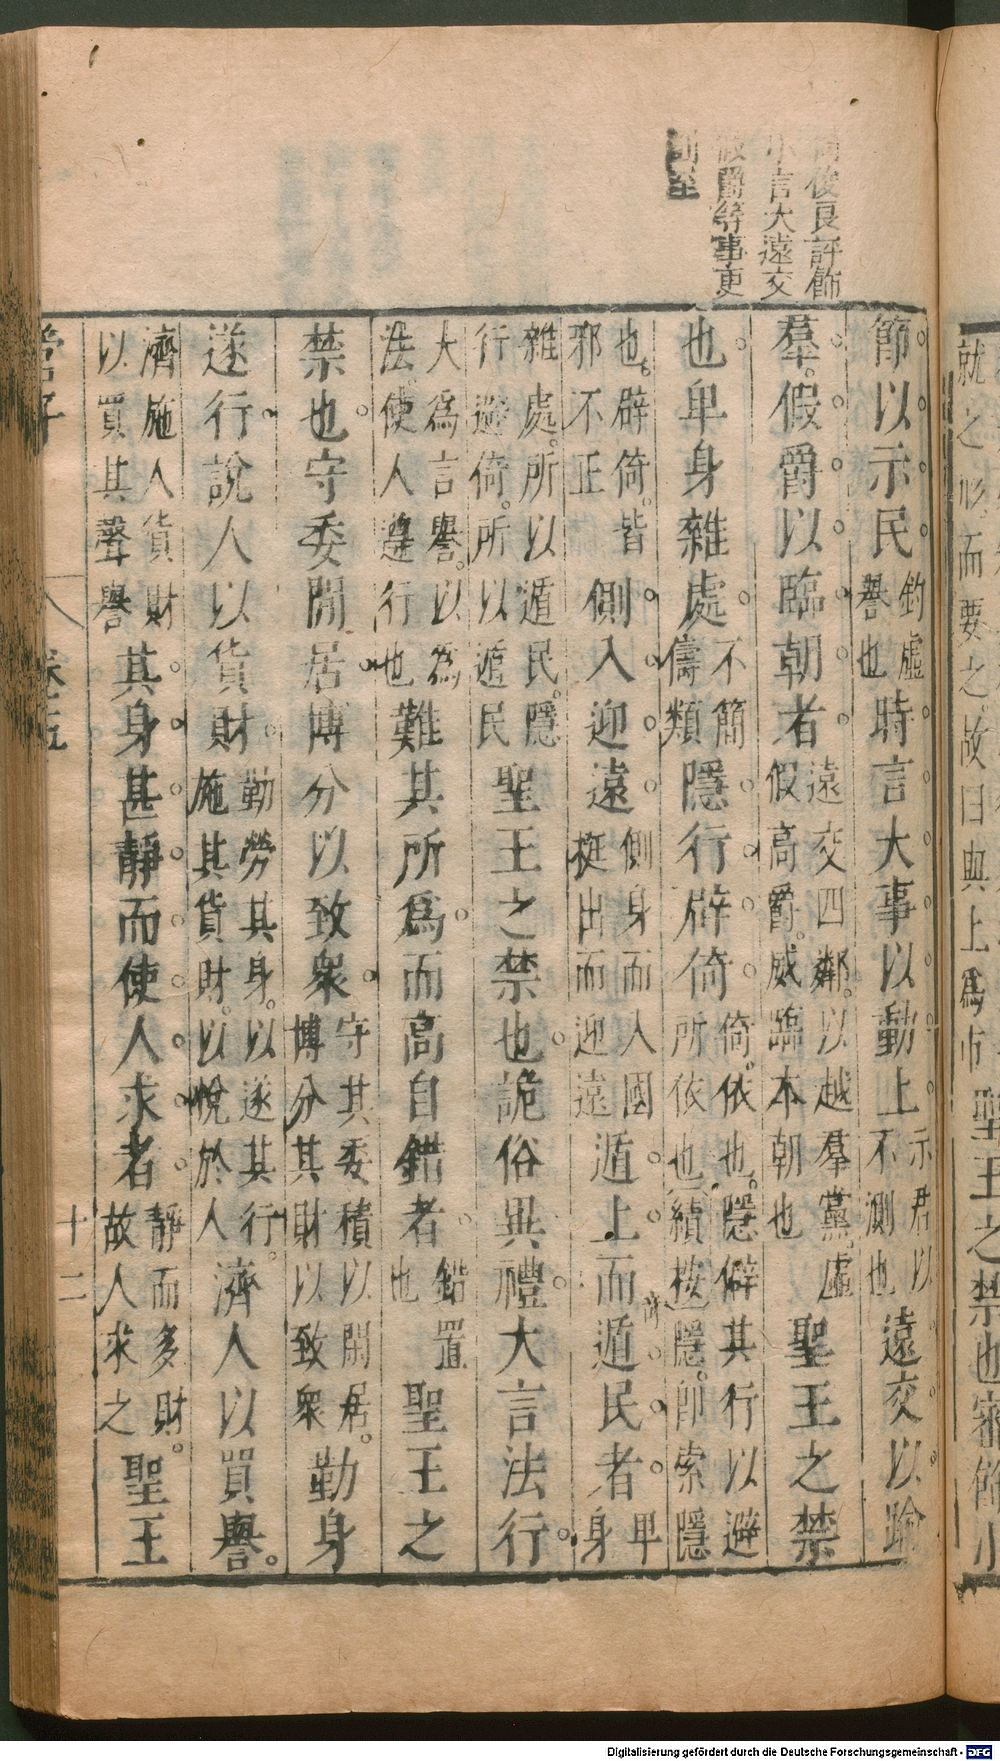 就之形而要之故曰與上爲市聖王之禁也審飾小
俊良評飾
小言大遠交
假爵等事更
節以示民釣虛譽也時言大事以動上示君以不測也遠交以踰
羣假爵以臨朝者遠交四鄰以越羣黨虛假高爵威臨本朝也聖王之禁
也卑身雜處不簡儔類隱行辟倚倚依也隱僻其行以避所依也續按隱卽索隱
也辟倚皆邪不正側入迎遠側身而入國挺出而迎遠遁上而遁民者卑身
雜處所以遁民隱行避倚所以遁民聖王之禁也詭俗異禮大言法行
大爲言譽以爲法使人遵行也難其所爲而高自錯者錯置也聖王之
禁也守委閒居博分以致衆守其委積以閒居博分其財以致衆勤身
遂行說人以貨財勤勞其身以遂其行施其貨財以悅於人濟人以買譽
濟施人貨財以買其聲譽其身甚靜而使人求者靜而多財故人求之聖王
管子 卷五 十二
Digitalisierung gefördert durch die Deutsche Forschungsgemeinschaft - DFG